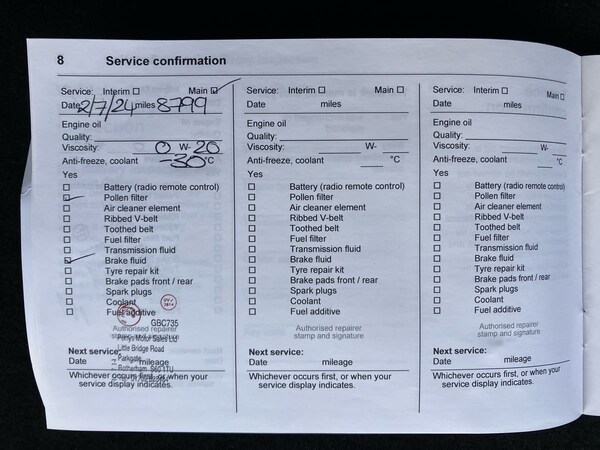 8 Service confirmation
Service: Interim ☐ Main ☑
Date 2/7/24 miles 8799
Engine oil
Quality:
Viscosity: 0 W- 20
Anti-freeze, coolant -30 °C
Yes
☐ Battery (radio remote control)
☑ Pollen filter
☐ Air cleaner element
☐ Ribbed V-belt
☐ Toothed belt
☐ Fuel filter
☐ Transmission fluid
☑ Brake fluid
☐ Tyre repair kit
☐ Brake pads front / rear
☐ Spark plugs
☐ Coolant
☐ Fuel additive
GBC735
Authorised repairer
stamp and signature
Perrys Motor Sales Ltd
Little Bridge Road
Parkgate
Rotherham
Next service:
Date mileage
Whichever occurs first, or when your
service display indicates.
Service: Interim ☐ Main ☐
Date miles
Engine oil
Quality:
Viscosity: W-
Anti-freeze, coolant °C
Yes
☐ Battery (radio remote control)
☐ Pollen filter
☐ Air cleaner element
☐ Ribbed V-belt
☐ Toothed belt
☐ Fuel filter
☐ Transmission fluid
☐ Brake fluid
☐ Tyre repair kit
☐ Brake pads front / rear
☐ Spark plugs
☐ Coolant
☐ Fuel additive
Authorised repairer
stamp and signature
Next service:
Date mileage
Whichever occurs first, or when your
service display indicates.
Service: Interim ☐ Main ☐
Date miles
Engine oil
Quality:
Viscosity: W-
Anti-freeze, coolant °C
Yes
☐ Battery (radio remote control)
☐ Pollen filter
☐ Air cleaner element
☐ Ribbed V-belt
☐ Toothed belt
☐ Fuel filter
☐ Transmission fluid
☐ Brake fluid
☐ Tyre repair kit
☐ Brake pads front / rear
☐ Spark plugs
☐ Coolant
☐ Fuel additive
Authorised repairer
stamp and signature
Next service:
Date mileage
Whichever occurs first, or when your
service display indicates.